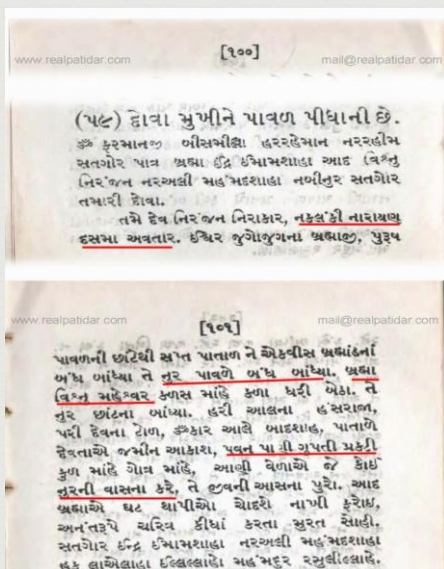 [૧૦૦]
www.realpatidar.com mail@realpatidar.com
(૫૯) દોવા મુખીને પાવળ પીધાની છે.
ૐ ફરમાનજી બીસમીલ્લા હરરહેમાન નરરહીમ
સતગોર પાત્ર બ્રહ્મા ઈંદ્ર ઈમામશાહા આદ વિશ્નુ
નિરંજન નરઅલી મહંમદશાહા નબીનુર સતગોર
તમારી દોવા.
તમે દેવ નિરંજન નિરાકાર, નકલંકી નારાયણ
દસમા અવતાર. ઈશ્વર જુગોજુગના બ્રહ્માજી, પુરૂષ
www.realpatidar.com mail@realpatidar.com
[૧૦૧]
પાવળની છાંટેથી સપ્ત પાતાળ ને એકવીસ બ્રહ્માંડનાં
બંધ બાંધ્યા તે નુર પાવળે બંધ બાંધ્યા. બ્રહ્મા
વિશ્નુ મહેશ્વર કળસ માંહે કળા ધરી બેઠા. તે
નુર છાંટના બાંધ્યા. હરી આલના હંસરાજ,
પરી દેવના ટોળ, ૐકાર આલે બાદશાહ, પાતાળે
દેવતાએ જમીન આકાશ, પવન પાણી ગુપતી પ્રકટી
કુળ માંહે ગોત્ર માંહે, આણી વેળાએ જે કોઈ
નુરની વાસના કરે, તે જીવની આસના પુરો. આદ
બ્રહ્માએ ઘટ થાપીઓ ચાદશે નાખી ફરોઇ,
અનંતરૂપે ચરિત્ર કીધાં કરતા સુરત સોહી.
સતગોર ઈન્દ્ર ઈમામશાહા નરઅલી મહંમદશાહા
હક લાએલાહા ઈલ્લલ્લાહો મહંમદુર રસુલીલ્લાહે.